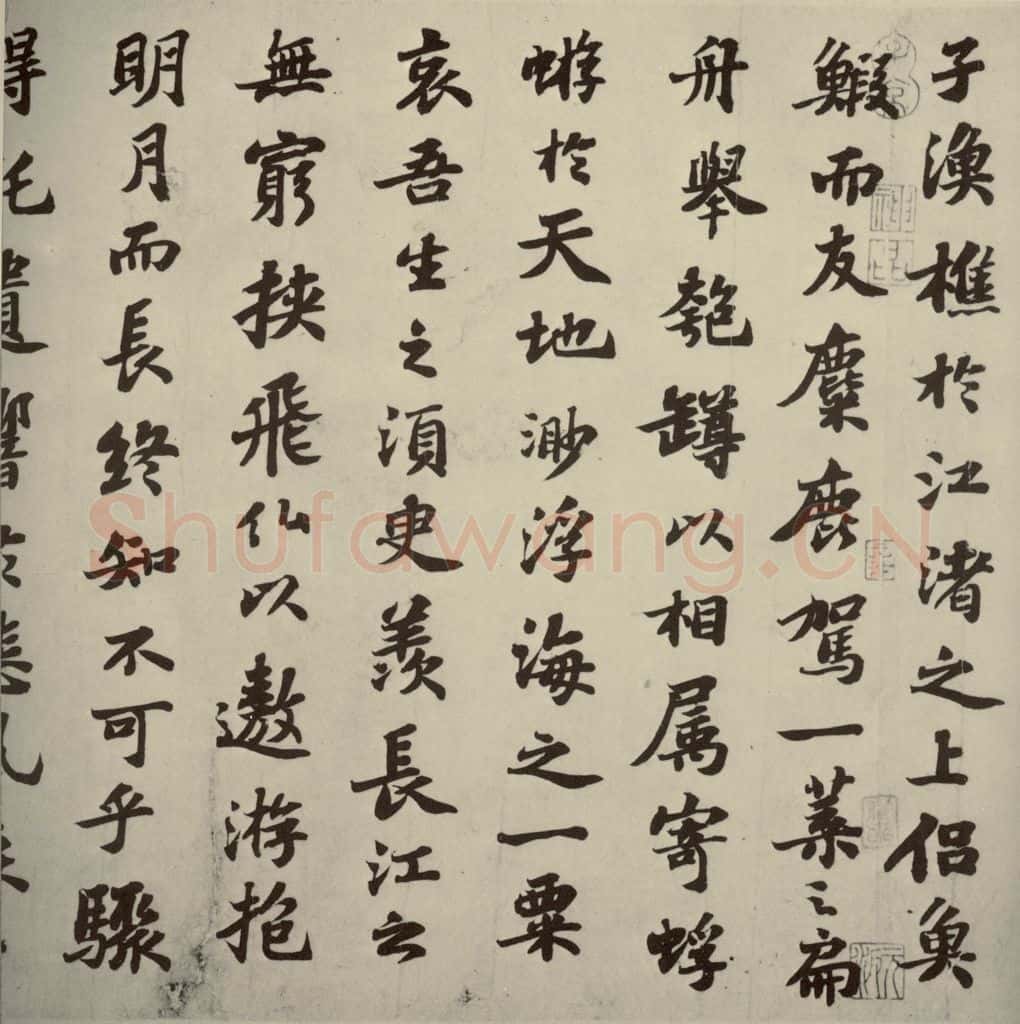 子漁樵於江渚之上侶魚
鰕而友麋鹿駕一葉之扁
舟舉匏罇以相属寄蜉
蝣於天地渺浮海之一粟
哀吾生之須臾羨長江之
無窮挾飛仙以遨游抱
明月而長終知不可乎驟
得
Shufawang.CN